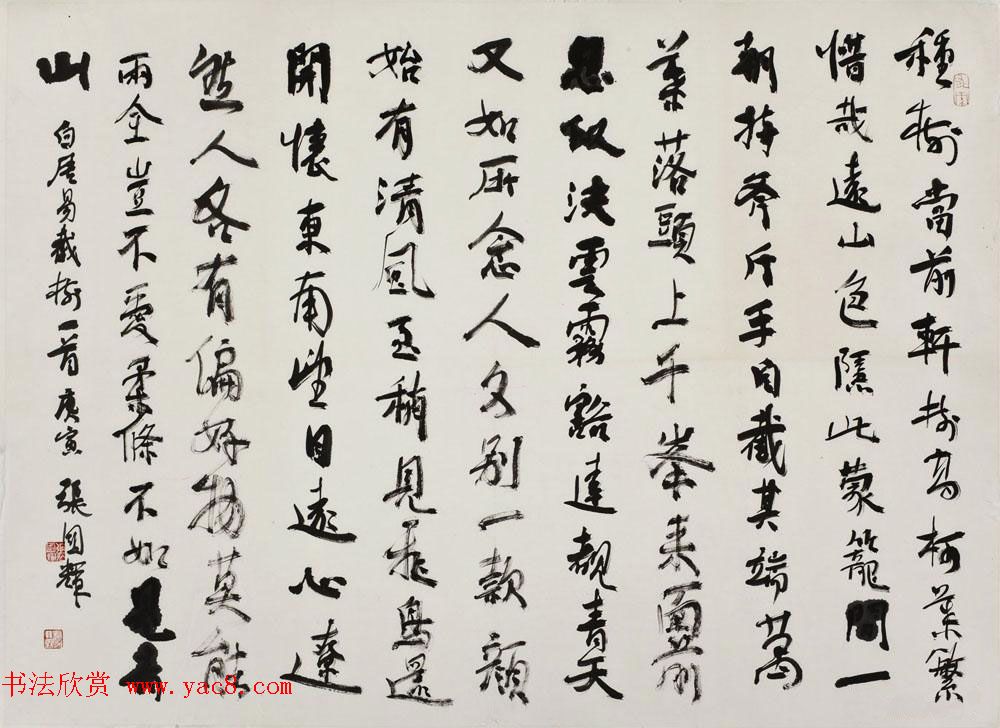 種樹當前軒樹高柯葉繁
惜哉遠山色隱此蒙籠間一
朝持斧斤手自截其端萬
葉落頭上千峯來面前
忽似決雲霧豁達覩青天
又如所念人久別一款顏
始有清風至稍見飛鳥還
開懷東南望目遠心遼
然人各有偏好物莫能
兩全豈不愛柔條不如見青
山
白居易截樹一首庚寅 張國輝
书法欣赏 www.yac8.com